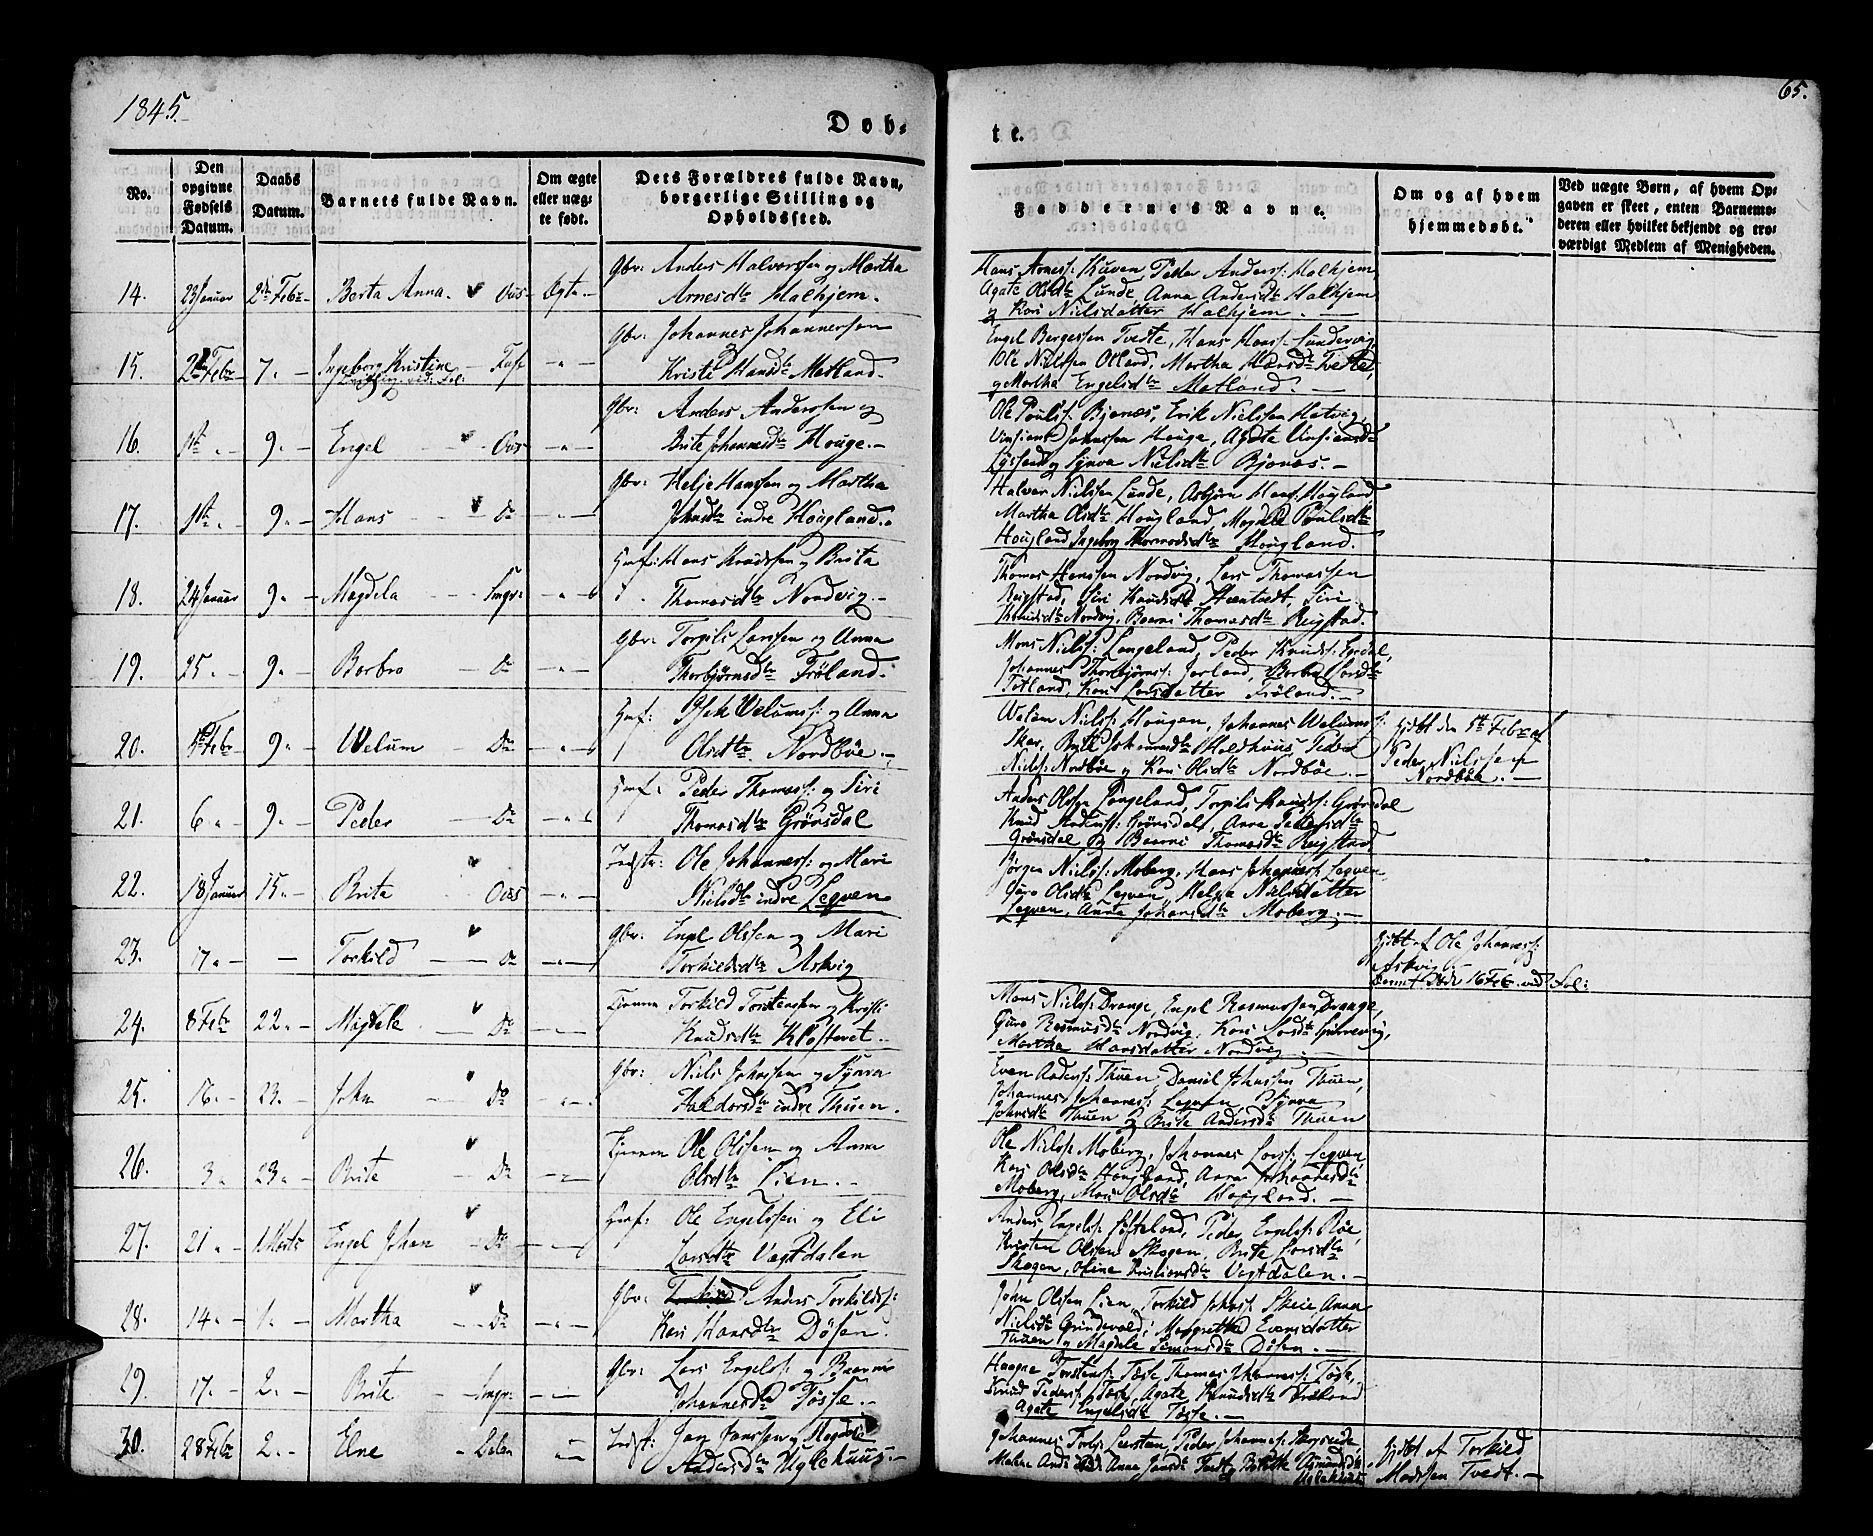 1845.
65.
Døb-
te.
No.
Den opgivne Fødsels Datum.
Daabs Datum.
Barnets fulde Navn.
Om ægte eller uægte født.
Dets Forældres fulde Navn, borgerlige Stilling og Opholdssted.
Faddernes Navne.
Om og af hvem hjemmedøbt.
Ved uægte Børn, af hvem Opgaven er skeet, enten Barnemoderen eller hvilket bekjendt og troværdigt Medlem af Menigheden.
14. 23 Januar 2den Febr Berta Anna Oos Egte
Gbr: Anders Halvorssen og Martha
Arnesdtr Halhjem.
Hans Arness: Kuven, Peder Anderss: Halhjem
Agate Olsdtr Lunde, Anna Andersdtr Halhjem
og Kari Nielsdatter Halhjem.
15. 2 Febr 7. Ingeborg Kristine Fuse
Gbr: Johannes Johannessen
Kristi Hansdtr Matland
Engel Bergessen Tvete, Hans Hanss: Sundsvig
Ole Nielssen Oeland, Martha Hansdtr Tvete,
og Martha Engelsdtr Matland
16. 1ste 9. Engel Oos
Gbr: Anders Anderssen og
Brite Johannesdtr Houge.
Ole Poulss: Bjønæs, Erik Nielssen Hatvig,
Vinsient Johnssen Houge, Agate Vinsientsd
og Synva Nielsdtr Bjønæs.
17. 1ste 9. Hans Do
Gbr: Helje Hanssen og Martha
Johnsdtr indre Hougland.
Halvor Nielssen Lunde, Asbjørn Hanss: Hougland
Martha Olsdtr Hougland, Magdele Poulsdtr
Hougland Ingeborg Thormodsdtr Hougland.
18. 24 Januar 9. Magdela Smgr:
Hmf: Hans Knudssen og Brita
Thomasdtr Nordvig.
Thomas Hanssen Nordvig, Lars Thomassen
Reigstad, Siri Knudsdtr Hæntvedt, Siri
Thomasdtr Nordvig, Baarni Thomasdtr Reigstad.
19. 25 9. Barbro Do
Gbr: Torgils Larssen og Anna
Thorbjørnsdtr Frøland.
Mons Nielss: Langeland, Peder Knuds: Egedal,
Johannes Thorbjørnss: Jorland, Barbra Larsdtr
Titland, Kari Larsdatter Frøland.
20. 5te Febr 9. Welum Do
Hmf: Isak Welumss: og Anna
Olsdtr Nordbøe.
Welum Nielss: Haugen, Johannes Welumss:
Skar, Brite Johannesdtr Holdhuus, Peder
Nielss: Nordbøe og Kari Olsdtr Nordbøe.
Hjdbt den 5te Febr af
Peder Nielssen
Nordbøe.
21. 6 9. Peder Do
Hmf: Peder Thomass: og Siri
Thomasdtr Grønsdal
Anders Olssen Langeland, Torgils Knudss: Grønsdal
Knud Anderss: Grønsdal, Anne Pedersdtr
Grønsdal og Baarni Thomasdtr Reigstad
22. 18 Januar 15. Brita Oos
Indstr: Ole Johanness: og Mari
Nielsdtr indre Leqven
Jørgen Nielss: Moberg, Hans Johanness: Leqven,
Guro Olsdtr Leqven, Helga Nielsdatter
Leqven, Anna Johansdtr Moberg.
23. 17 Torkild Do
Gbr: Engel Olssen og Mari
Torkildsdtr Askvig
Hjdbt af Ole Johanness:
Askvig.
Barnet Døde 16 Feb. ved Fol:
24. 8 Febr 22. Magdele Do
Tjenna Torkild Torstenssen og Kristi
Knudsdtr Klosteret.
Mons Nielss: Drange, Engel Rasmussen Drange,
Guro Rasmusdtr Nordvig, Kari Larsdtr Gjerrevig,
Martha Hansdatter Nordvig
25. 16. 23. John Do
Gbr: Niels Johnssen og Synva
Haldorsdtr indre Thuen.
Even Anderss: Thuen, Daniel Johnssen Tuen,
Johannes Johanness: Leqven Synva
Johnsdtr Thuen og Brite Andersdtr Thuen
26. 3 23. Brite Do
Tjenna Ole Olssen og Anna
Olsdtr Lien.
Ole Nielss: Moberg, Johannes Larss: Leqven
Kari Olsdtr Hougland, Anna Johannesdtr
Moberg, Mari Olsdtr Hougland.
27. 21 1 Marts Engel Johan Do
Hmf: Ole Engelssen og Eli
Larsdtr Vegtdalen
Anders Engelss: Søfteland, Peder Engelss: Røe,
Kristen Olssen Skogen, Brite Larsdtr
Skogen, Oline Kristiansdtr Vegtdalen.
28. 14. 1. Martha Do
Gbr: Anders Torkildss:
Kari Hansdtr Døsen.
John Olssen Lien, Torkild Johnss: Skeie Anna
Nielsdtr Grindevold, Margretha Evensdatter
Thuen og Magdele Simonsdtr Døsen.
29. 17. 2. Brite Smgr:
Gbr: Lars Engelss: og Baarni
Johannesdtr Tøsse.
Haagne Torstenss: Tøse, Thomas Johannss: Tøsse,
Knud Pederss: Tøsse, Agate Knudsdtr Frøland
Agate Engelsdtr Tøsse.
30. 28 Febr 2. Elne Dalen
Indst: Jan Janssen og Magdele
Andersdtr Uglehuug.
Johannes Leersten, Peder Johanness:
Malene Anna Jansdtr Tvedt,
Uglehuus
Hjdbt af Torkild
Madssen Tvedt.